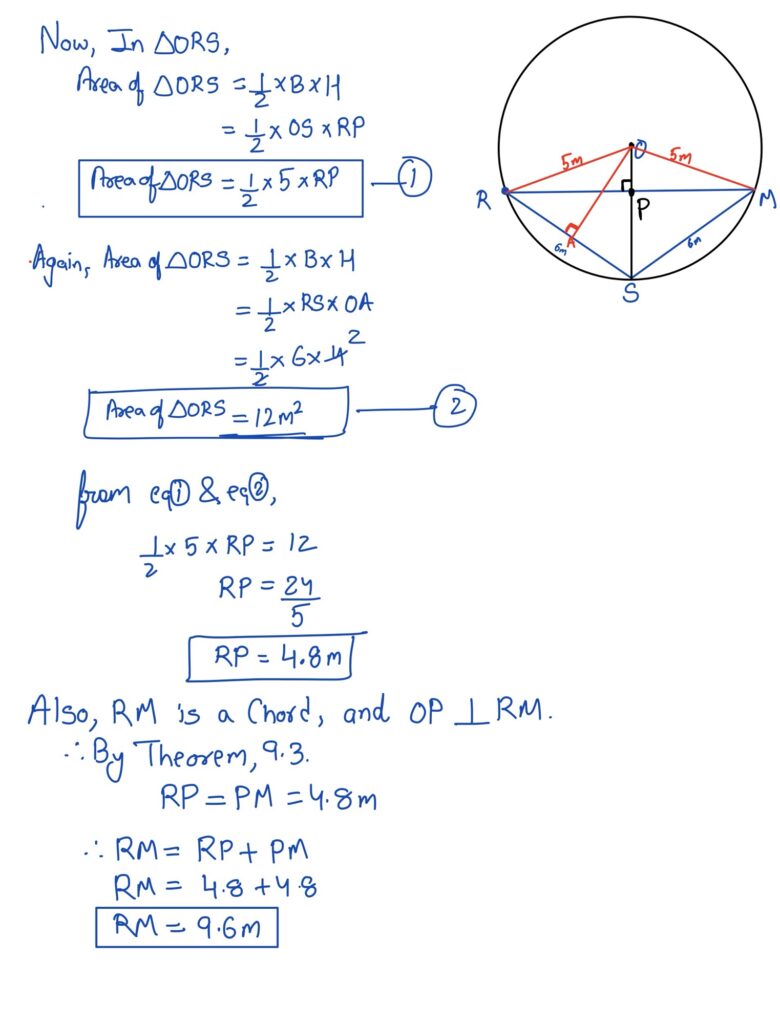 Now, In △ORS,
Area of △ORS = 1/2 × B × H
= 1/2 × OS × RP
Area of △ORS = 1/2 × 5 × RP — ①
Again, Area of △ORS = 1/2 × B × H
= 1/2 × RS × OA
= 1/2 × 6 × 4 2
Area of △ORS = 12m² — ②
from eq① & eq②,
1/2 × 5 × RP = 12
RP = 24/5
RP = 4.8m
Also, RM is a Chord, and OP ⊥ RM.
∴ By Theorem, 9.3.
RP = PM = 4.8m
∴ RM = RP + PM
RM = 4.8 + 4.8
RM = 9.6m
O
5m 5m
R P M
A
6m 6m
S